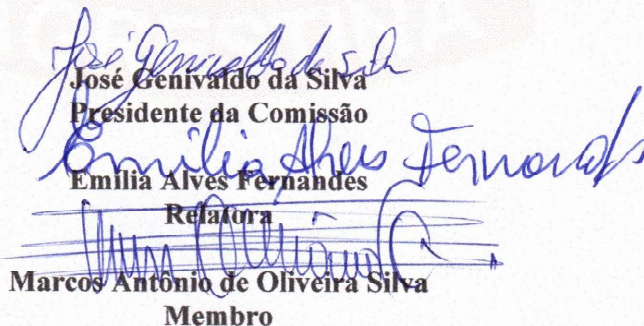 José Genivaldo da Silva
José Genivaldo da Silva
Presidente da Comissão
Emilia Alves Fernandes
Emilia Alves Fernandes
Relatora
Marcos Antônio de Oliveira Silva
Membro